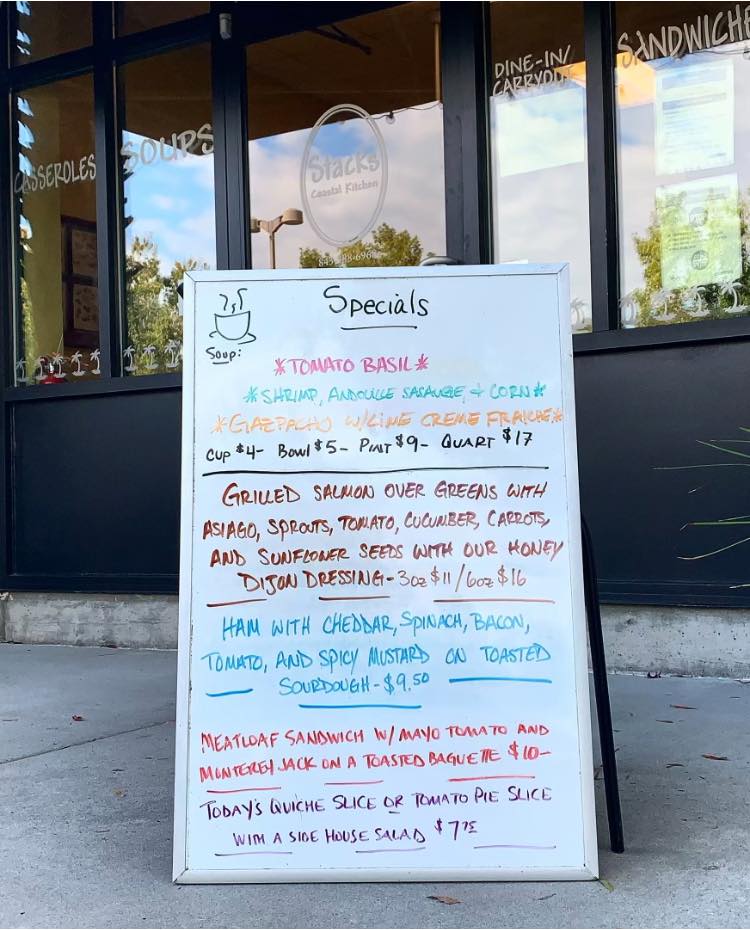 CASSEROLES
SOUPS
Stacks
Coastal Kitchen
DINE-IN/
CARRYOUT
SANDWICHE
Specials
Soup:
*TOMATO BASIL*
*SHRIMP, ANDOUILLE SASAUGE, + CORN*
*GAZPACHO W/LIME CREME FRAICHE*
CUP $4- Bowl $5- PINT $9- QUART $17
GRILLED SALMON OVER GREENS WITH
ASIAGO, SPROUTS, TOMATO, CUCUMBER, CARROTS,
AND SUNFLOWER SEEDS WITH OUR HONEY
DIJON DRESSING-3oz $11/6oz $16
HAM WITH CHEDDAR, SPINACH, BACON,
TOMATO, AND SPICY MUSTARD ON TOASTED
SOURDOUGH-$9.50
MEATLOAF SANDWICH W/ MAYO TOMATO AND
MONTEREY JACK ON A TOASTED BAGUETTE $10-
TODAY'S QUICHE SLICE OR TOMATO PIE SLICE
WITH A SIDE HOUSE SALAD $7.75